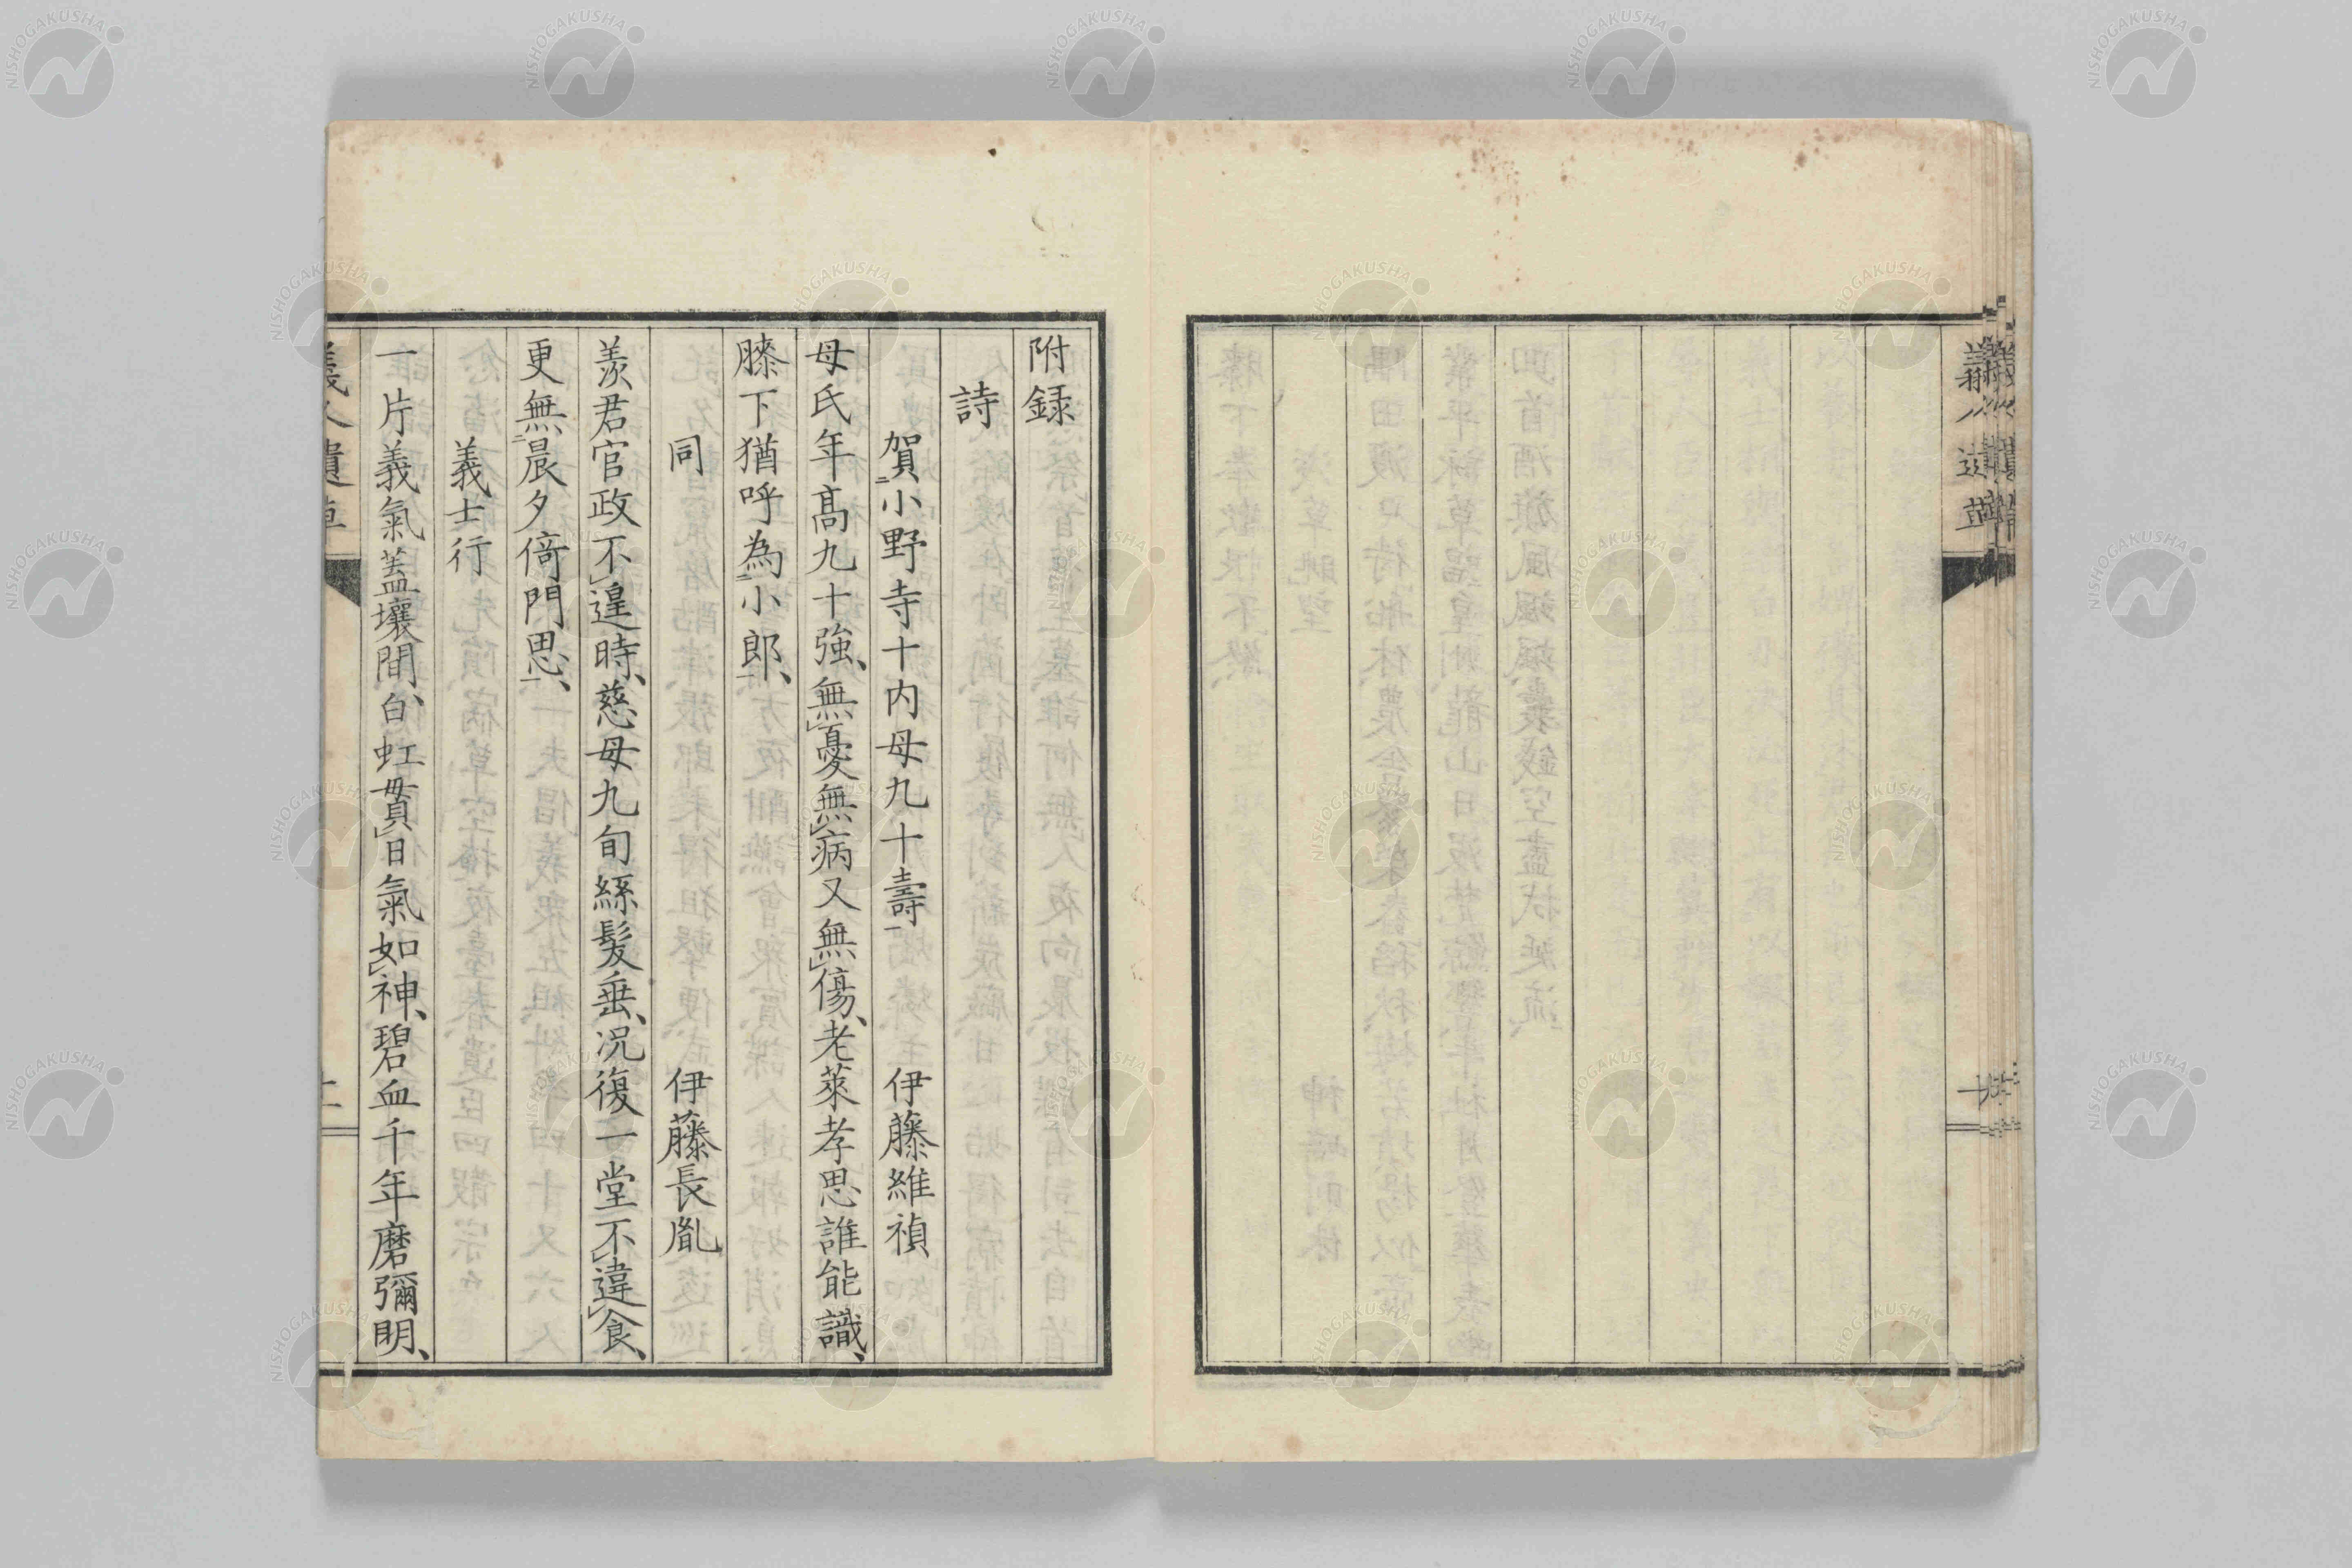 附録
詩
賀小野寺十内母九十壽 伊藤維禎
母氏年髙九十強、無憂無病又無傷、老萊孝思誰能識、
膝下猶呼為小郎、
同 伊藤長胤
羨君官政不遑時、慈母九旬絲髮垂、況復一堂不違食、
更無晨夕倚門思、
義士行
一片義氣蓋壤間、白虹貫日氣如神、碧血千年磨彌明、
NISHOGAKUSHA